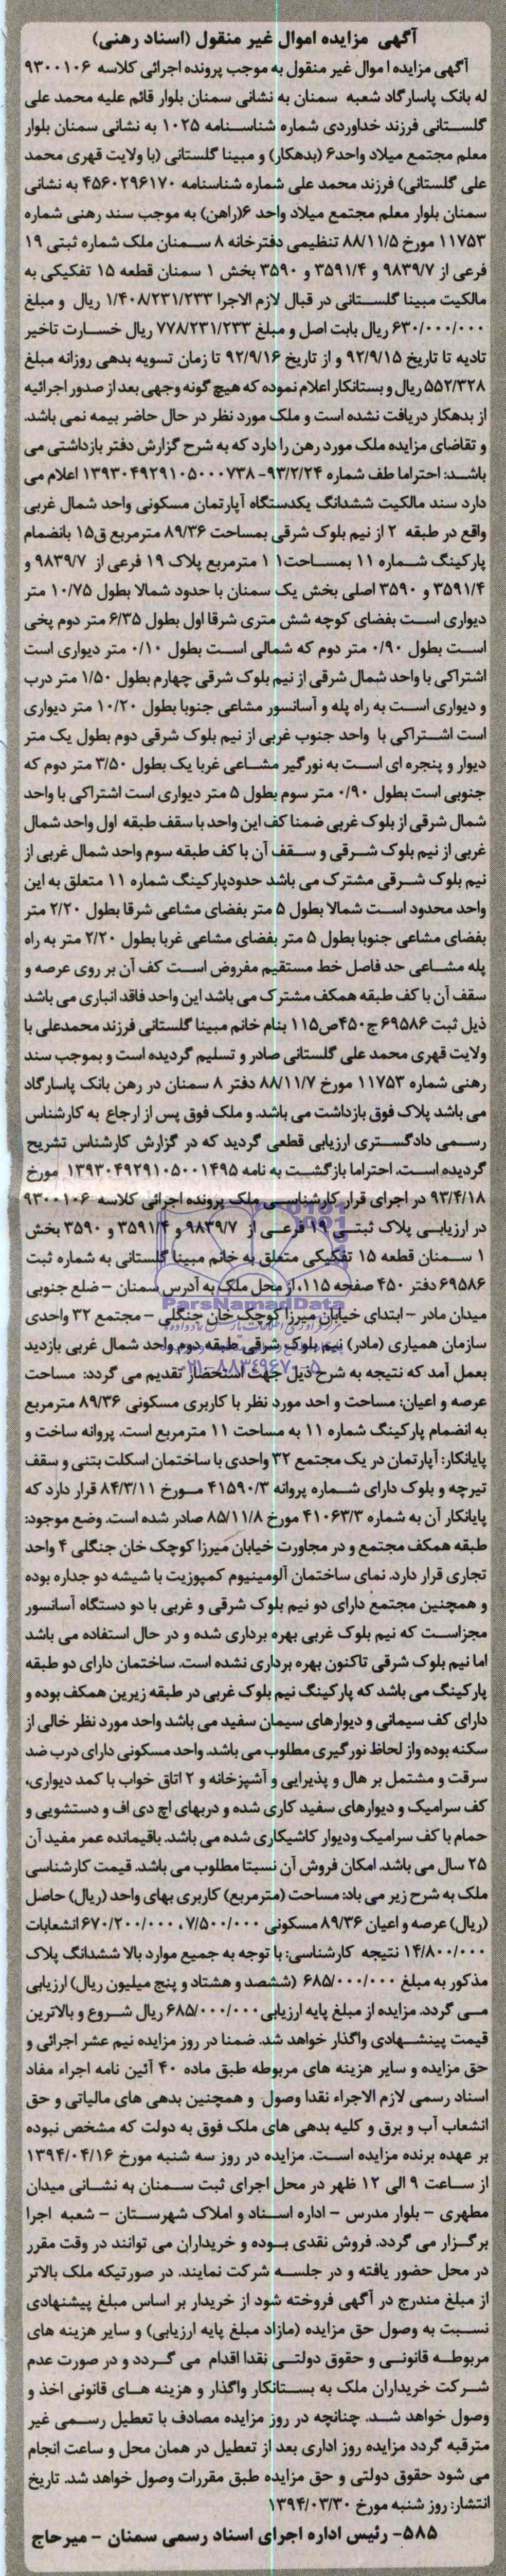 آگهی مزایده اموال غیر منقول (اسناد رهنی)
آگهی مزایده اموال غیر منقول به موجب پرونده اجرائی کلاسه ۹۳۰۰۱۰۶
له بانک پاسارگاد شعبه سمنان به نشانی سمنان بلوار قائم علیه محمد علی
گلستانی فرزند خداوردی شماره شناسنامه ۱۰۲۵ به نشانی سمنان بلوار
معلم مجتمع میلاد واحد۶ (بدهکار) و مبینا گلستانی (با ولایت قهری محمد
علی گلستانی) فرزند محمد علی شماره شناسنامه ۴۵۶۰۲۹۶۱۷۰ به نشانی
سمنان بلوار معلم مجتمع میلاد واحد ۶(راهن) به موجب سند رهنی شماره
۱۱۷۵۳ مورخ ۸۸/۱۱/۵ تنظیمی دفترخانه ۸ سمنان ملک شماره ثبتی ۱۹
فرعی از ۹۸۳۹/۷ و ۳۵۹۱/۴ و ۳۵۹۰ بخش ۱ سمنان قطعه ۱۵ تفکیکی به
مالکیت مبینا گلستانی در قبال لازم الاجرا ۱/۴۰۸/۲۳۱/۲۳۳ ریال و مبلغ
۶۳۰/۰۰۰/۰۰۰ ریال بابت اصل و مبلغ ۷۷۸/۲۳۱/۲۳۳ ریال خسارت تاخیر
تادیه تا تاریخ ۹۲/۹/۱۵ و از تاریخ ۹۲/۹/۱۶ تا زمان تسویه بدهی روزانه مبلغ
۵۵۲/۳۲۸ ریال و بستانکار اعلام نموده که هیچ گونه وجهی بعد از صدور اجرائیه
از بدهکار دریافت نشده است و ملک مورد نظر در حال حاضر بیمه نمی باشد.
و تقاضای مزایده ملک مورد رهن را دارد که به شرح گزارش دفتر بازداشتی می
باشد: احتراما طف شماره ۹۳/۲/۲۴- ۱۳۹۳۰۴۹۲۹۱۰۵۰۰۰۷۳۸ اعلام می
دارد سند مالکیت ششدانگ یکدستگاه آپارتمان مسکونی واحد شمال غربی
واقع در طبقه ۲ از نیم بلوک شرقی بمساحت ۸۹/۳۶ مترمربع ق۱۵ بانضمام
پارکینگ شماره ۱۱ بمساحت۱۱ مترمربع پلاک ۱۹ فرعی از ۹۸۳۹/۷ و
۳۵۹۱/۴ و ۳۵۹۰ اصلی بخش یک سمنان با حدود شمالا بطول ۱۰/۷۵ متر
دیواری است بفضای کوچه شش متری شرقا اول بطول ۶/۳۵ متر دوم پخی
است بطول ۰/۹۰ متر دوم که شمالی است بطول ۰/۱۰ متر دیواری است
اشتراکی با واحد شمال شرقی از نیم بلوک شرقی چهارم بطول ۱/۵۰ متر درب
و دیواری است به راه پله و آسانسور مشاعی جنوبا بطول ۱۰/۲۰ متر دیواری
است اشتراکی با واحد جنوب غربی از نیم بلوک شرقی دوم بطول یک متر
دیوار و پنجره ای است به نورگیر مشاعی غربا یک بطول ۳/۵۰ متر دوم که
جنوبی است بطول ۰/۹۰ متر سوم بطول ۵ متر دیواری است اشتراکی با واحد
شمال شرقی از بلوک غربی ضمنا کف این واحد با سقف طبقه اول واحد شمال
غربی از نیم بلوک شرقی و سقف آن با کف طبقه سوم واحد شمال غربی از
نیم بلوک شرقی مشترک می باشد حدودپارکینگ شماره ۱۱ متعلق به این
واحد محدود است شمالا بطول ۵ متر بفضای مشاعی شرقا بطول ۲/۲۰ متر
بفضای مشاعی جنوبا بطول ۵ متر بفضای مشاعی غربا بطول ۲/۲۰ متر به راه
پله مشاعی حد فاصل خط مستقیم مفروض است کف آن بر روی عرصه و
سقف آن با کف طبقه همکف مشترک می باشد این واحد فاقد انباری می باشد
ذیل ثبت ۶۹۵۸۶ ج۴۵۰ص۱۱۵ بنام خانم مبینا گلستانی فرزند محمدعلی با
ولایت قهری محمد علی گلستانی صادر و تسلیم گردیده است و بموجب سند
رهنی شماره ۱۱۷۵۳ مورخ ۸۸/۱۱/۷ دفتر ۸ سمنان در رهن بانک پاسارگاد
می باشد پلاک فوق بازداشت می باشد. و ملک فوق پس از ارجاع به کارشناس
رسمی دادگستری ارزیابی قطعی گردید که در گزارش کارشناس تشریح
گردیده است. احتراما بازگشت به نامه ۱۳۹۳۰۴۹۲۹۱۰۵۰۰۱۴۹۵ مورخ
۹۳/۴/۱۸ در اجرای قرار کارشناسی ملک پرونده اجرائی کلاسه ۹۳۰۰۱۰۶
در ارزیابی پلاک ثبتی ۱۹ فرعی از ۹۸۳۹/۷ و ۳۵۹۱/۴ و ۳۵۹۰ بخش
۱ سمنان قطعه ۱۵ تفکیکی متعلق به خانم مبینا گلستانی به شماره ثبت
۶۹۵۸۶ دفتر ۴۵۰ صفحه ۱۱۵، از محل ملک به آدرس سمنان - ضلع جنوبی
ParsNamadData
میدان مادر - ابتدای خیابان میرزا کوچک خان جنگلی - مجتمع ۳۲ واحدی
سازمان همیاری (مادر) نیم بلوک شرقی طبقه دوم واحد شمال غربی بازدید
۰۲۱-۸۸۳۴۹۶۷۰-۵
بعمل آمد که نتیجه به شرح ذیل جهت استحضار تقدیم می گردد: مساحت
عرصه و اعیان: مساحت و احد مورد نظر با کاربری مسکونی ۸۹/۳۶ مترمربع
به انضمام پارکینگ شماره ۱۱ به مساحت ۱۱ مترمربع است. پروانه ساخت و
پایانکار: آپارتمان در یک مجتمع ۳۲ واحدی با ساختمان اسکلت بتنی و سقف
تیرچه و بلوک دارای شماره پروانه ۴۱۵۹۰/۳ مورخ ۸۴/۳/۱۱ قرار دارد که
پایانکار آن به شماره ۴۱۰۶۳/۳ مورخ ۸۵/۱۱/۸ صادر شده است. وضع موجود:
طبقه همکف مجتمع و در مجاورت خیابان میرزا کوچک خان جنگلی ۴ واحد
تجاری قرار دارد. نمای ساختمان آلومینیوم کمپوزیت با شیشه دو جداره بوده
و همچنین مجتمع دارای دو نیم بلوک شرقی و غربی با دو دستگاه آسانسور
مجزاست که نیم بلوک غربی بهره برداری شده و در حال استفاده می باشد
اما نیم بلوک شرقی تاکنون بهره برداری نشده است. ساختمان دارای دو طبقه
پارکینگ می باشد که پارکینگ نیم بلوک غربی در طبقه زیرین همکف بوده و
دارای کف سیمانی و دیوارهای سیمان سفید می باشد واحد مورد نظر خالی از
سکنه بوده واز لحاظ نورگیری مطلوب می باشد. واحد مسکونی دارای درب ضد
سرقت و مشتمل بر هال و پذیرایی و آشپزخانه و ۲ اتاق خواب با کمد دیواری،
کف سرامیک و دیوارهای سفید کاری شده و دربهای اچ دی اف و دستشویی و
حمام با کف سرامیک ودیوار کاشیکاری شده می باشد. باقیمانده عمر مفید آن
۲۵ سال می باشد. امکان فروش آن نسبتا مطلوب می باشد. قیمت کارشناسی
ملک به شرح زیر می باد: مساحت (مترمربع) کاربری بهای واحد (ریال) حاصل
(ریال) عرصه و اعیان ۸۹/۳۶ مسکونی ۷/۵۰۰/۰۰۰، ۶۷۰/۲۰۰/۰۰۰ انشعابات
۱۴/۸۰۰/۰۰۰ نتیجه کارشناسی: با توجه به جمیع موارد بالا ششدانگ پلاک
مذکور به مبلغ ۶۸۵/۰۰۰/۰۰۰ (ششصد و هشتاد و پنج میلیون ریال) ارزیابی
می گردد. مزایده از مبلغ پایه ارزیابی ۶۸۵/۰۰۰/۰۰۰ ریال شروع و بالاترین
قیمت پیشنهادی واگذار خواهد شد. ضمنا در روز مزایده نیم عشر اجرائی و
حق مزایده و سایر هزینه های مربوطه طبق ماده ۴۰ آئین نامه اجراء مفاد
اسناد رسمی لازم الاجراء نقدا وصول و همچنین بدهی های مالیاتی و حق
انشعاب آب و برق و کلیه بدهی های ملک فوق به دولت که مشخص نبوده
بر عهده برنده مزایده است. مزایده در روز سه شنبه مورخ ۱۳۹۴/۰۴/۱۶
از ساعت ۹ الی ۱۲ ظهر در محل اجرای ثبت سمنان به نشانی میدان
مطهری - بلوار مدرس - اداره اسناد و املاک شهرستان - شعبه اجرا
برگزار می گردد. فروش نقدی بوده و خریداران می توانند در وقت مقرر
در محل حضور یافته و در جلسه شرکت نمایند. در صورتیکه ملک بالاتر
از مبلغ مندرج در آگهی فروخته شود از خریدار بر اساس مبلغ پیشنهادی
نسبت به وصول حق مزایده (مازاد مبلغ پایه ارزیابی) و سایر هزینه های
مربوطه قانونی و حقوق دولتی نقدا اقدام می گردد و در صورت عدم
شرکت خریداران ملک به بستانکار واگذار و هزینه های قانونی اخذ و
وصول خواهد شد. چنانچه در روز مزایده مصادف با تعطیل رسمی غیر
مترقبه گردد مزایده روز اداری بعد از تعطیل در همان محل و ساعت انجام
می شود حقوق دولتی و حق مزایده طبق مقررات وصول خواهد شد. تاریخ
انتشار: روز شنبه مورخ ۱۳۹۴/۰۳/۳۰
۵۸۵- رئیس اداره اجرای اسناد رسمی سمنان - میرحاج